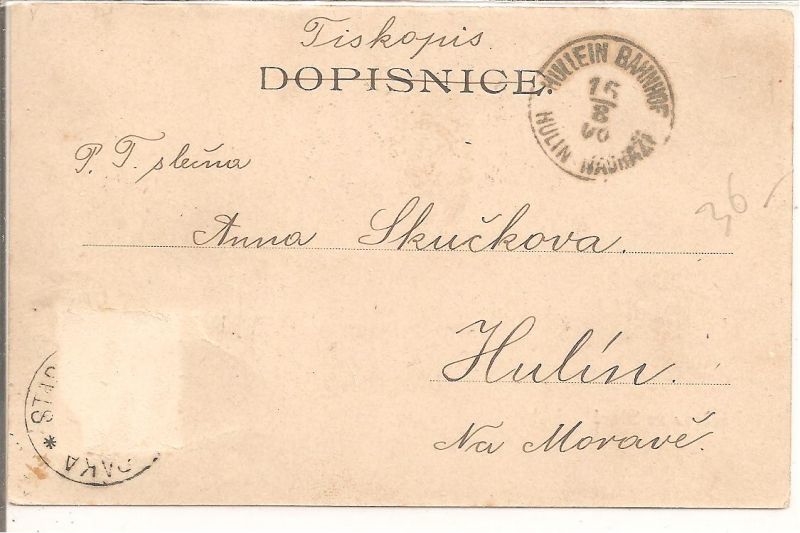 Tiskopis.
DOPISNICE.
HULLEIN BAHNHOF
16
8
HULIN NÁDRAŽÍ
P. T. slečna
3,6
Anna Skučkova.
Hulín.
Na Moravě.
PAKA * STAR